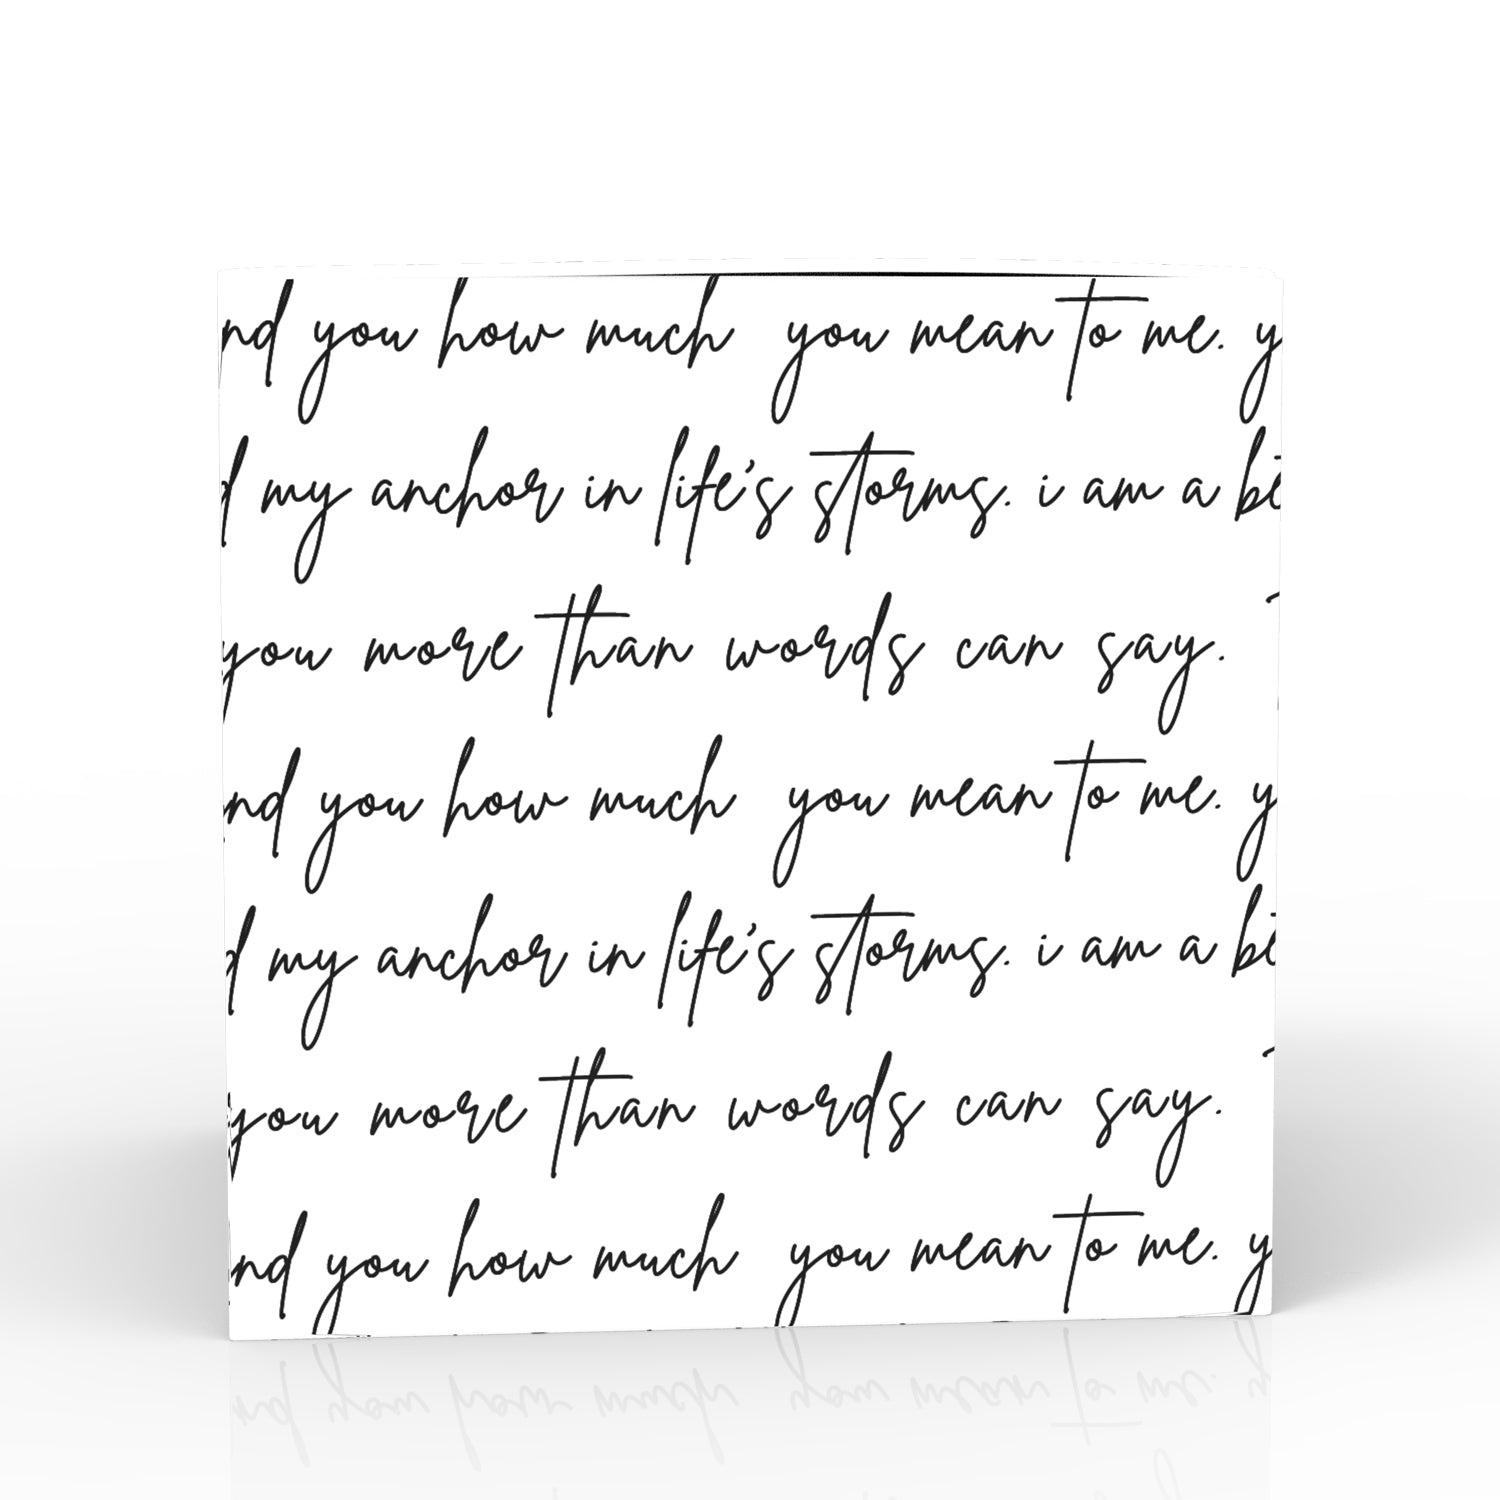 nd you how much you mean to me. y
d my anchor in life's storms. i am a be
you more than words can say.
nd you how much you mean to me. y
d my anchor in life's storms. i am a be
you more than words can say.
nd you how much you mean to me. y